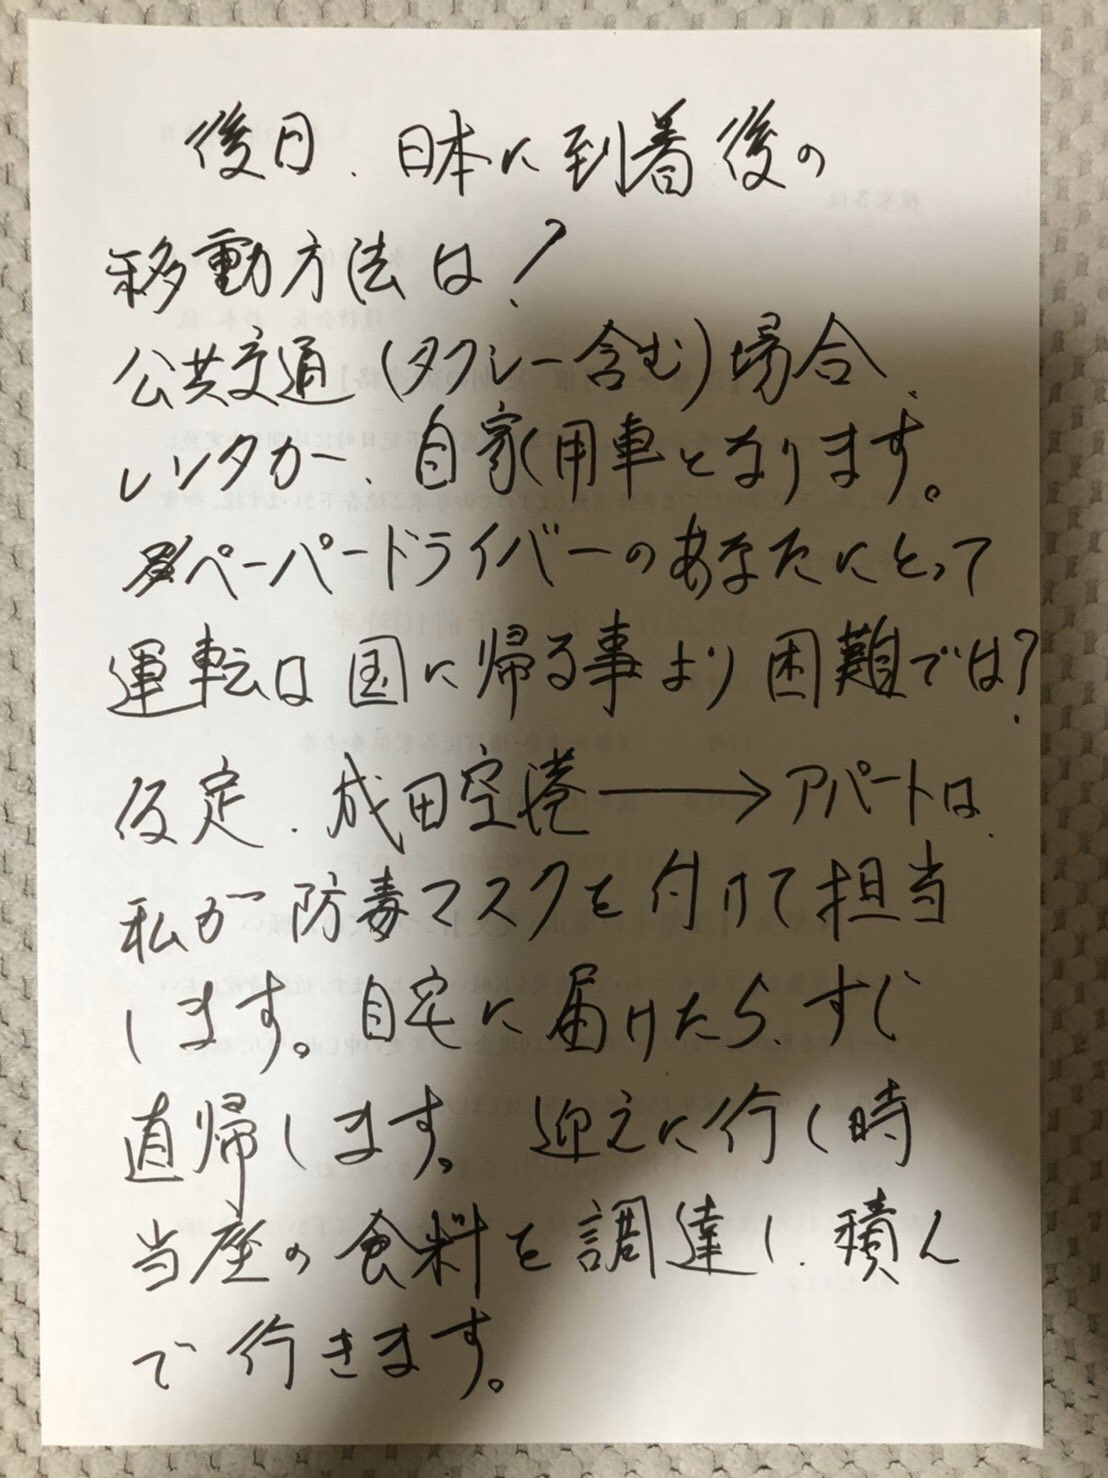 後日、日本に到着後の
移動方法は?
公共交通(タクシー含む)場合、
レンタカー、自家用車となります。
ペーパードライバーのあなたにとって
運転は国に帰る事より困難では?
仮定、成田空港→アパートは、
私が防毒マスクを付けて担当
します。自宅に届けたら、すぐ
直帰します。迎えに行く時
当座の食料を調達し、積ん
で行きます。